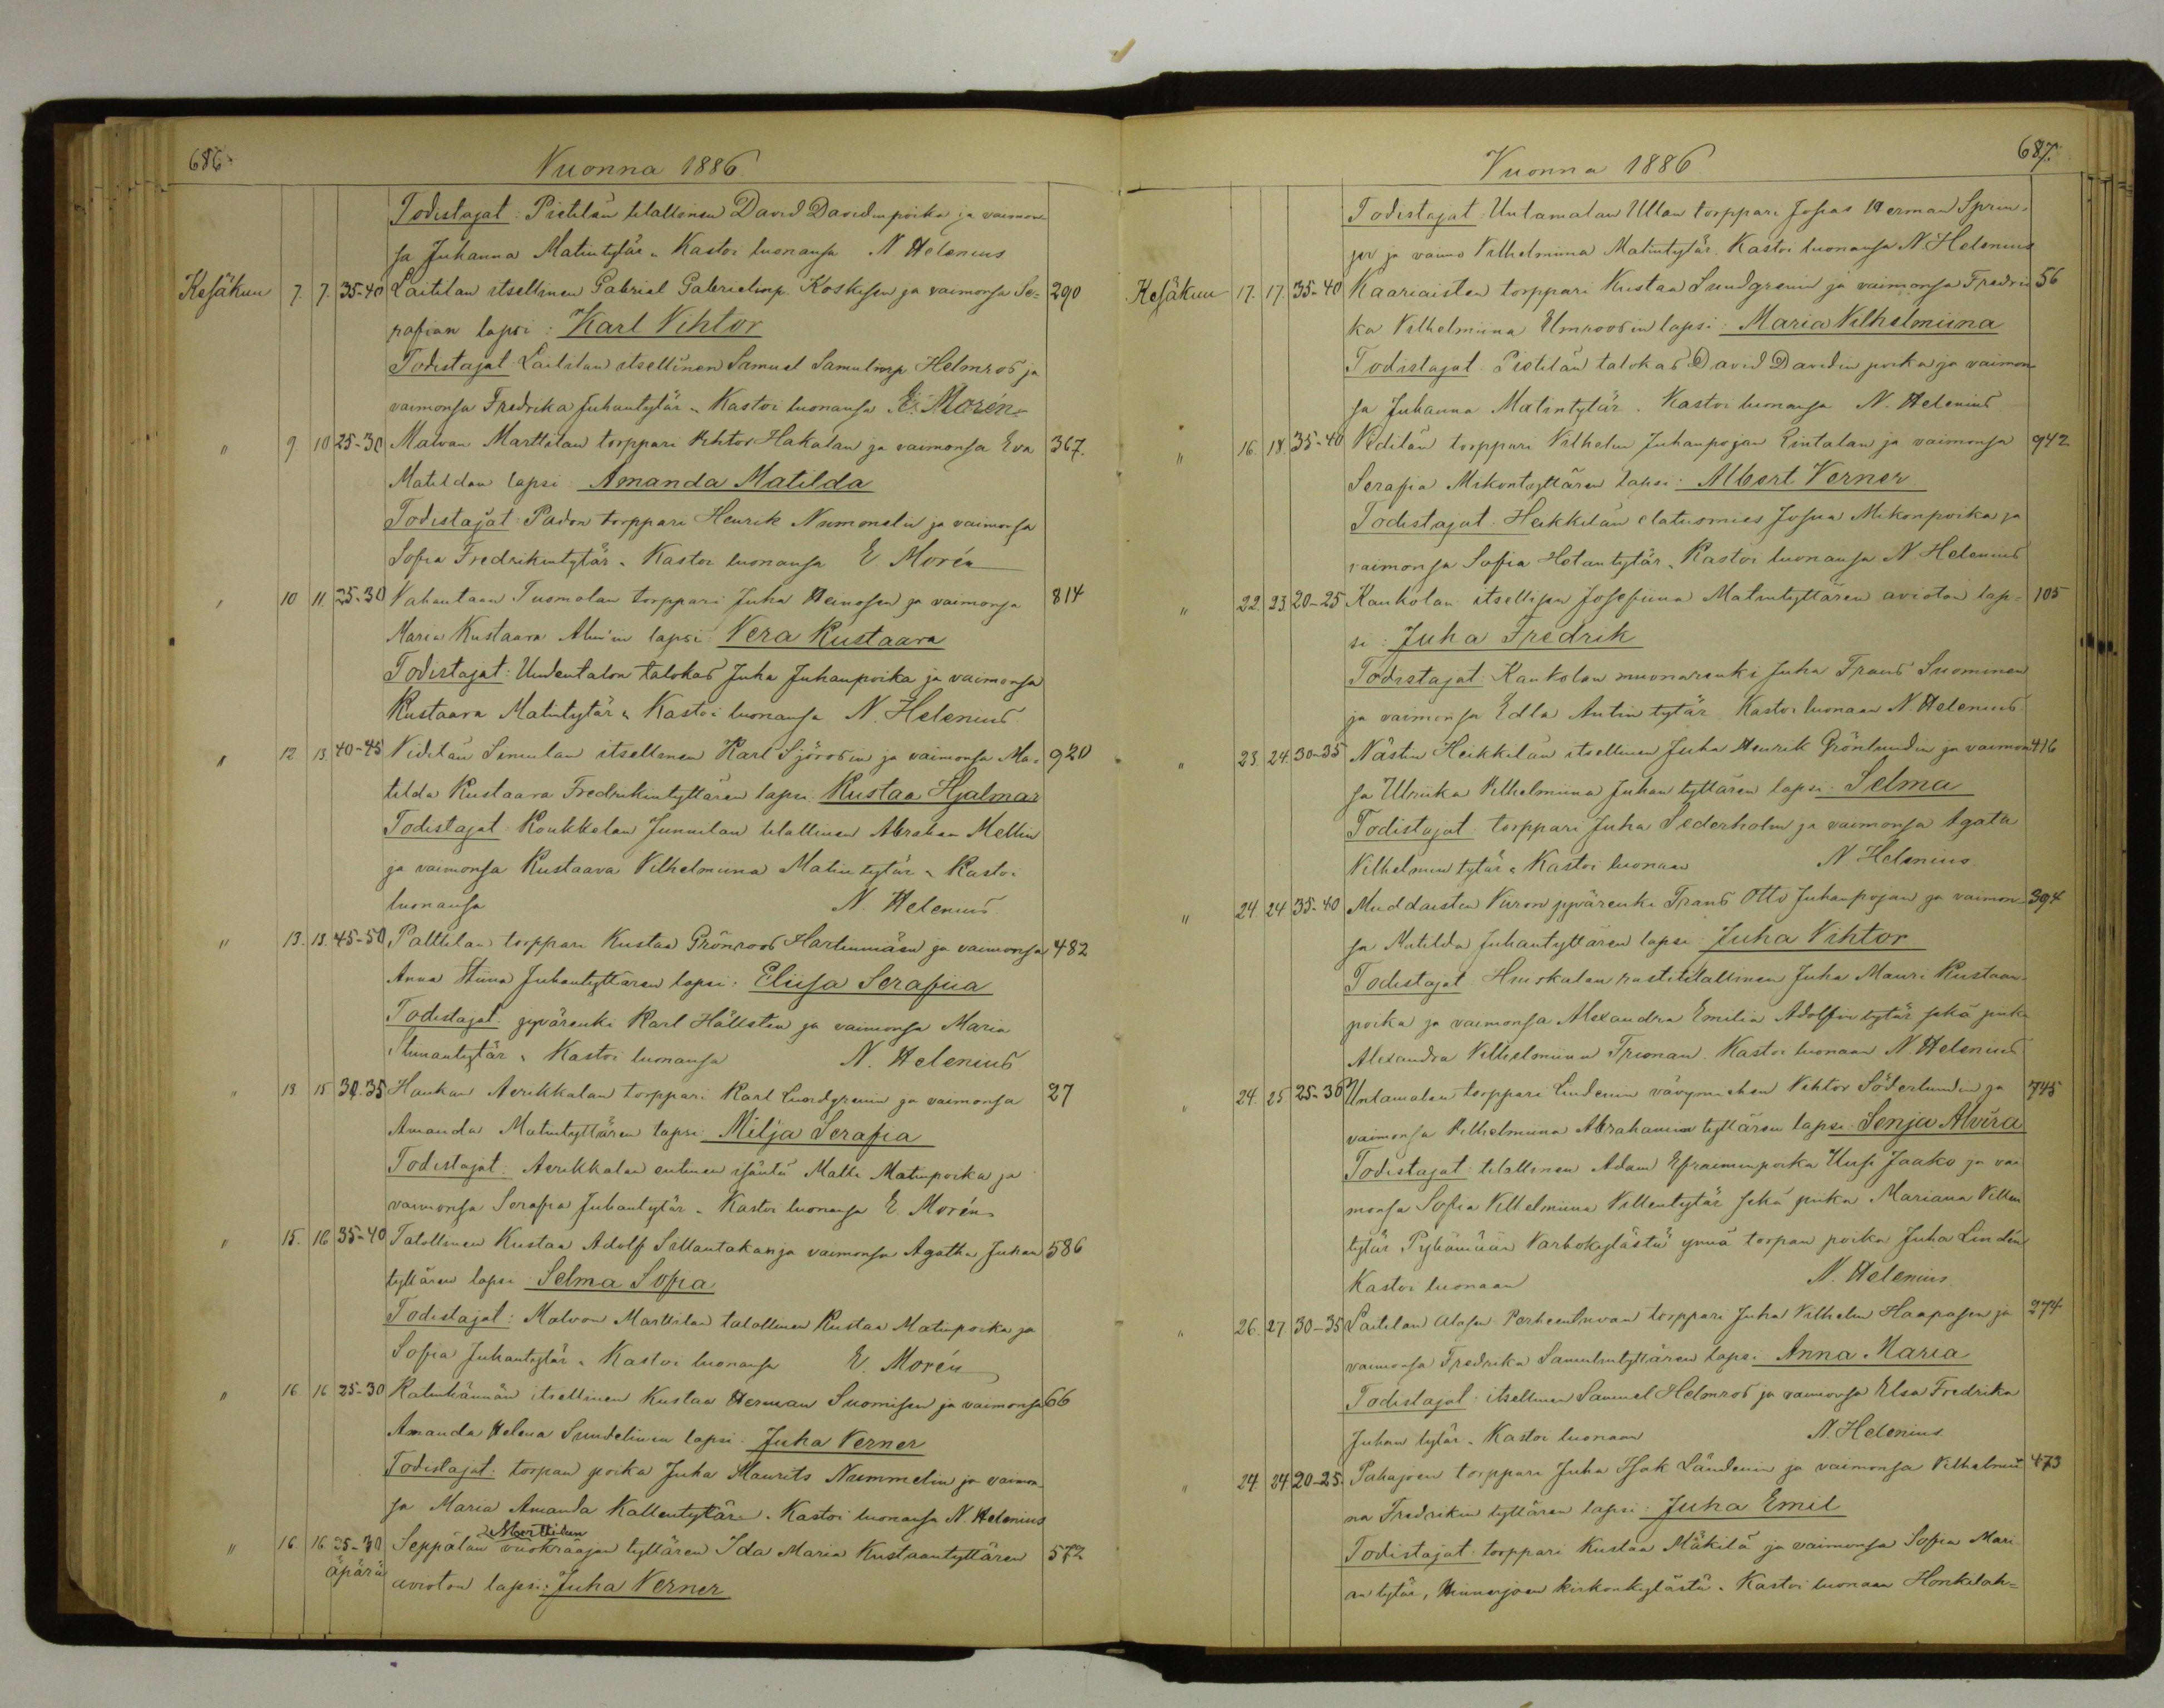 686.
Vuonna 1886.
Todistajat: Pietilän tilallinen David Davidinpoika ja vaimon-
sa Juhanna Matintytär. Kastoi luonansa N Helenius
Kesäkuu 7. 7. 35-40 Laitilan itsellinen Gabriel Gabrielinp. Koskisen ja vaimonsa Se- 290
rafian lapsi: Karl Vihtor
Todistajat: Laitilan itsellinen Samuel Samulinp. Helmros ja
vaimonsa Fredrika Juhantytär. Kastoi luonansa E. Morén
" 9. 10 25-30 Malvan Marttilan torppari Vihtor Hakalan ja vaimonsa Eva 367.
Matildan lapsi: Amanda Matilda
Todistajat: Padon torppari Henrik Nummelin ja vaimonsa
Sofia Fredrikintytär. Kastoi luonansa E. Morén
" 10 11. 25-30 Vahantaan Tuomolan torppari Juha Heinosen ja vaimonsa 814
Maria Kustaava Alm'in lapsi: Vera Kustaava
Todistajat: Uudentalon talokas Juha Juhanpoika ja vaimonsa
Kustaava Matintytär. Kastoi luonansa N. Helenius.
" 12 13. 40-45 Viditän Simulan itsellinen Karl Sjöroosin ja vaimonsa Ma- 920
tilda Kustaava Fredrikintyttären lapsi: Kustaa Hjalmar
Todistajat: Koukkelan Junnilan tilallinen Abraham Mellin
ja vaimonsa Kustaava Vilhelmiina Matintytär. Kastoi
luonansa N. Helenius.
" 13. 13. 45-50 Palttilan torppari Kustaa Grönroos Hartinmäen ja vaimonsa 482
Anna Stiina Juhantyttären lapsi: Eliisa Serafiia
Todistajat: pyvärenki Karl Hällsten ja vaimonsa Maria
Simuantytär. Kastoi luonansa N. Helenius.
" 13. 15 30-35 Haukan Aerikkalan torppari Karl Lundgrenin ja vaimonsa 27
Amanda Matintyttären lapsi: Milja Serafia
Todistajat: Aerikkalan entinen isäntä Matti Matinpoika ja
vaimonsa Serafia Juhantytär. Kastoi luonansa E. Morén
" 15. 16 35-40 Talollinen Kustaa Adolf Sillantakan ja vaimonsa Agatha Juhan 586
tyttären lapsi: Selma Sofia
Todistajat: Malvon Marttilan talollinen Kustaa Matinpoika ja
Sofia Juhantytär. Kastoi luonansa E. Morén
" 16. 16 25-30 Kalinhännän itsellinen Kustaa Herman Suomisen ja vaimonsa 66
Amanda Helena Sundelinin lapsi: Juha Verner
Todistajat: torpan poika Juha Maurits Nummelin ja vaimon-
sa Maria Amanda Kallentytär. Kastoi luonansa N. Helenius
" 16. 16 25-30 Seppälan Marttilan vuokraajan tyttären Ida Maria Kustaantyttären 572
äpärä avioton lapsi: Juha Verner
687.
Vuonna 1886.
Todistajat: Untamalan Ullan torppari Josias Herman Sprin-
ger ja vaimo Vilhelmiina Matintytär. Kastoi luonansa N. Helenius
Kesäkuu 17. 17. 35-40 Kaariaisten torppari Kustaa Sundgrenin ja vaimonsa Fredri- 56
ka Vilhelmiina Elmroosin lapsi: Maria Vilhelmiina
Todistajat: Pietilän talokas David Davidin poika ja vaimon-
sa Juhanna Matintytär. Kastoi luonansa N. Helenius
" 16. 18. 35-40 Viditän torppari Vilhelm Juhanpojan Rintalan ja vaimonsa 942
Serafia Mikontyttären lapsi: Albert Verner
Todistajat: Heikkilän elatusmies Josua Mikonpoika ja
vaimonsa Sofia Hetantytär. Kastoi luonansa N. Helenius
" 22. 23. 20-25 Kaukolan itsellisen Josefiina Matintyttären avioton lap- 105
si: Juha Fredrik
Todistajat: Kaukolan muonarenki Juha Frans Suominen
ja vaimonsa Edla Antintytär. Kastoi luonaan N. Helenius.
" 23. 24. 30-35 Nästin Heikkilän itsellinen Juha Henrik Grönlundin ja vaimon- 416
sa Ulriika Vilhelmiina Juhan tyttären lapsi: Selma
Todistajat: torppari Juha Sederholm ja vaimonsa Agata
Vilhelmin tytär. Kastoi luonaan N Helenius.
" 24. 24 35-40 Muddaisten Viron pyvärenki Frans Otto Juhanpojan ja vaimon- 394
sa Matilda Juhantyttären lapsi: Juha Vihtor
Todistajat: Huiskalan rustitilallinen Juha Mauri Kustaan-
poika ja vaimonsa Alexandra Emilia Adolfintytär sekä piika
Alexandra Vilhelmiina Truonan. Kastoi luonaan N. Helenius
" 24. 25 25-30 Untamalan torppari Lindenin vävymiehen Vihtor Söderlundin ja 745
vaimonsa Vilhelmiina Abrahamin tyttären lapsi: Senja Alvira
Todistajat: tilallinen Adam Efraiminpoika Uusi Jaakko ja vai-
monsa Sofia Vilhelmiina Villentytär sekä piika Mariana Villen
tytär Pyhämään Varhokylästä ynnä torpan poika Juha Lindén
Kastoi luonaan N. Helenius.
" 26. 27. 30-35 Laitilan Alasen Perheentuvan torppari Juha Vilhelm Haapasen ja 274
vaimonsa Fredrika Samulintyttären lapsi: Anna Maria
Todistajat: itsellinen Samuel Helmros ja vaimonsa Elsa Fredrika
Juhan tytär. Kastoi luonaan N. Helenius.
" 24. 24. 20-25. Pahajoen torppari Juha Isak Ländenin ja vaimonsa Vilhelmii- 473
na Fredrikin tyttären lapsi: Juha Emil
Todistajat: torppari Kustaa Mäkilä ja vaimonsa Sofia Mari-
an tytär, Hinnerjoen kirkonkylästä. Kastoi luonaan Honkilah-